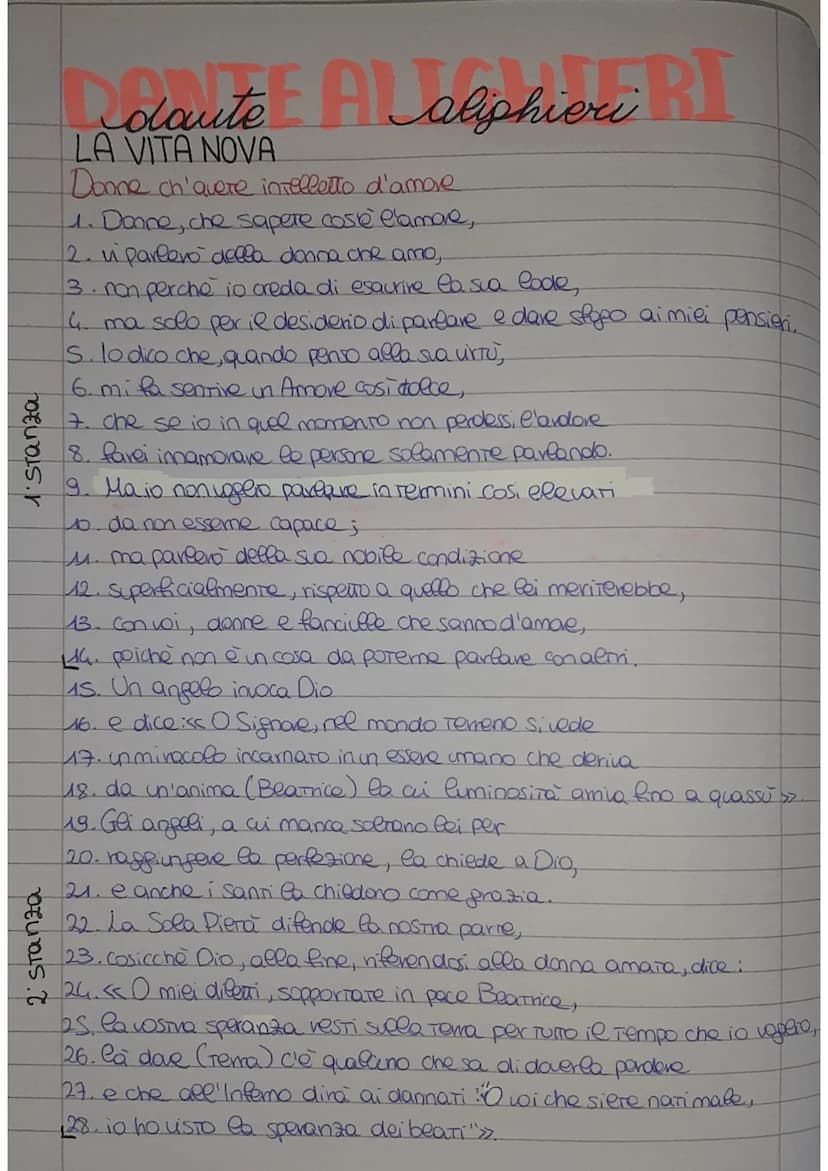 DANTE ALIGHIERI
dante alighieri
LA VITA NOVA
Donne ch'avete intelletto d'amore
1. Donne, che sapete cos'è l'amore,
2. vi parlerò della donna che amo,
3. non perché io creda di esaurire la sua lode,
4. ma solo per il desiderio di parlare e dare sfogo ai miei pensieri.
5. Io dico che, quando penso alla sua virtù,
6. mi fa sentire un Amore così dolce,
7. che se io in quel momento non perdessi l'ardore
8. farei innamorare le persone solamente parlando.
9. Ma io non voglio parlare in termini così elevati
10. da non esserne capace;
11. ma parlerò della sua nobile condizione
12. superficialmente, rispetto a quello che lei meriterebbe,
13. con voi, donne e fanciulle che sanno d'amore,
14. poiché non è un cosa da poterne parlare con altri.
1ª stanza
15. Un angelo invoca Dio
16. e dice: << O Signore, nel mondo terreno si vede
17. un miracolo incarnato in un essere umano che deriva
18. da un'anima (Beatrice) la cui luminosità arriva fino a quassù >>
19. Gli angeli, a cui manca soltano lei per
20. raggiungere la perfezione, la chiede a Dio,
21. e anche i santi la chiedono come grazia.
22. La Sola Pietà difende la nostra parte,
23. cosicché Dio, alla fine, riferendosi alla donna amata, dice:
24. << O miei diletti, sopportate in pace Beatrice,
25. la vostra speranza resti sulla terra per tutto il tempo che io voglio,
26. là dove (terra) c'è qualcuno che sa di doverla perdere
27. e che all'Inferno dirà ai dannati: "O voi che siete nati male,
28. io ho visto la speranza dei beati" >>.
2ª stanza